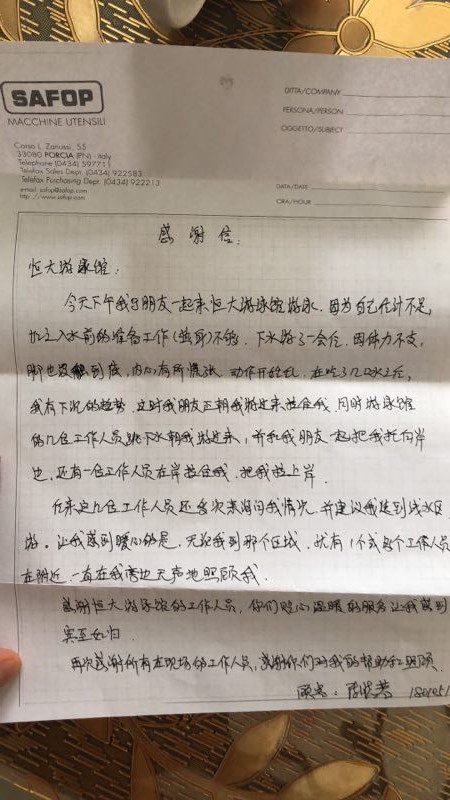 SAFOP
MACCHINE UTENSILI
Corso L. Zanussi, 55
33080 PORCIA (PN) - Italy
Telephone (0434) 597711
Telefax Sales Dept. (0434) 922583
Telefax Purchasing Dept. (0434) 922213
e-mail: safop@safop.com
http://www.safop.com
DITTA/COMPANY
PERSONA/PERSON
OGGETTO/SUBJECT
DATA/DATE
ORA/HOUR
感谢信:
恒大游泳馆:
今天下午我与朋友一起来恒大游泳馆游泳,因为自己估计不足
加之入水前的准备工作(热身)不够,下水游了一会后,因体力不支,
脚也没触到底,内心有所慌张,动作开始乱,在吃了几口水之后,
我有下沉的趋势,这时我朋友正朝我游过来拉住我,同时游泳馆
的几位工作人员跳下水朝我游过来,并和我朋友一起把我托向岸
边,还有一位工作人员在岸拉住我,把我拉上岸.
后来这几位工作人员还多次来询问我情况,并建议我送到浅水区
游。让我感到暖心的是,无论我到那个区域,就有1个或多个工作人员
在附近一直在我旁边无声地照顾我.
感谢恒大游泳馆的工作人员,你们贴心温暖的服务让我感到
宾至如归.
再次感谢所有在现场的工作人员,感谢你们对我的帮助和照顾.
顾客: